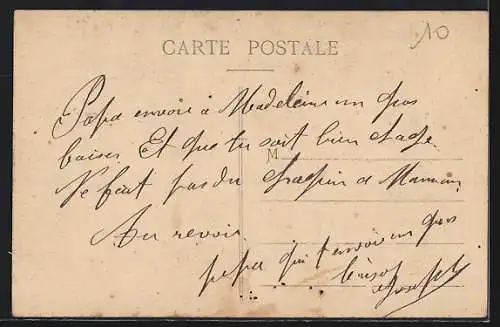 10
CARTE POSTALE
Papa envoie à Madeleine un gros
baiser Et que tu soit bien sage
M
Ne fait pas du chagrin a Maman
Au revoir
papa qui t'envoie un gros
baiser
Joseph